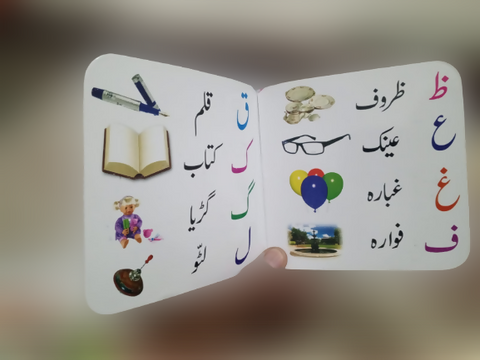 ظ ظروف
ع عینک
غ غبارہ
ف فوارہ
ق قلم
ک کتاب
گ گڑیا
ل لٹّو